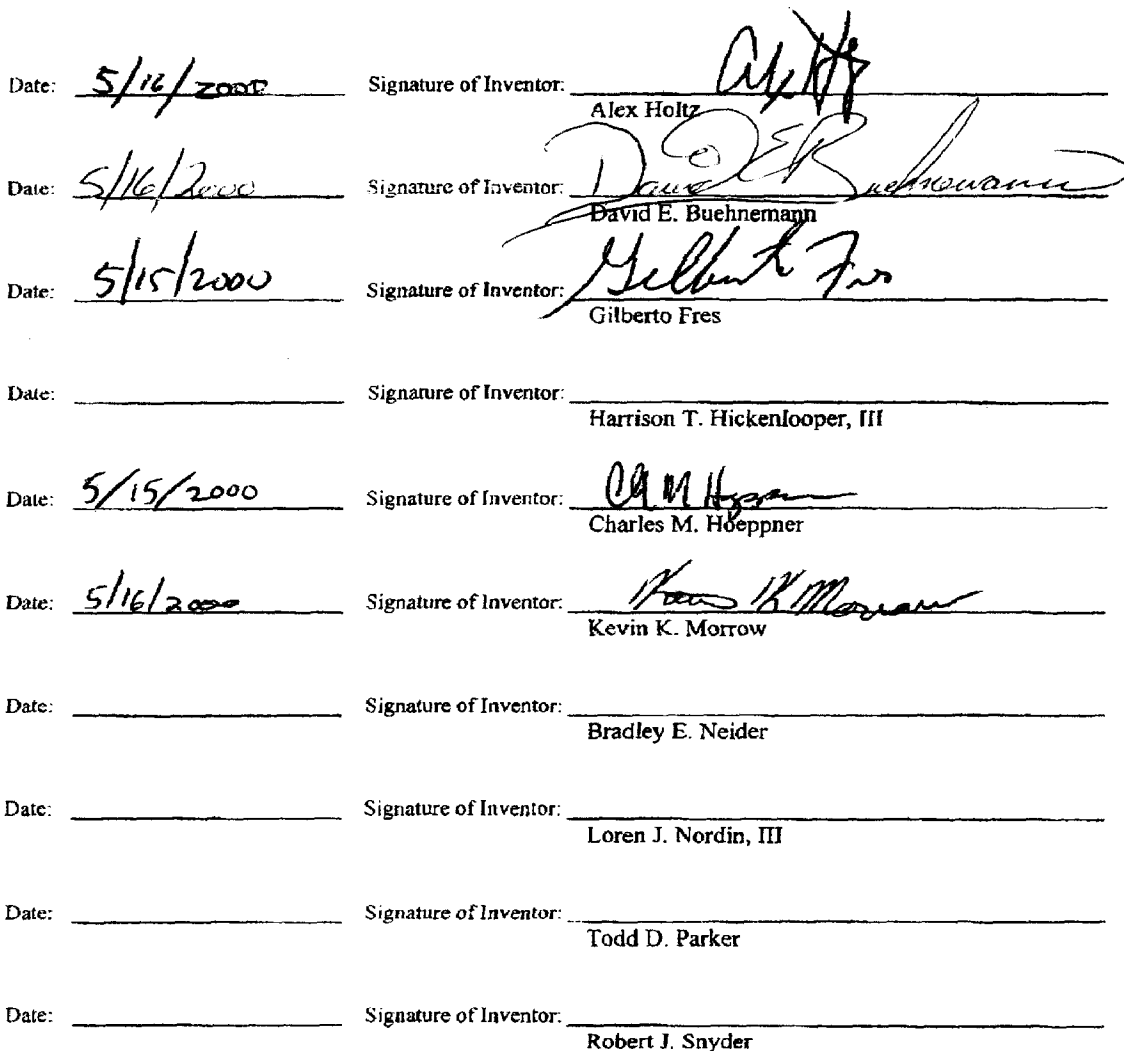 Date: 5/16/2000 Signature of Inventor:
Alex Holtz
Date: 5/16/2000 Signature of Inventor: David E Buehnemann
David E. Buehnemann
Date: 5/15/2000 Signature of Inventor: Gilberto Fres
Gilberto Fres
Date: Signature of Inventor:
Harrison T. Hickenlooper, III
Date: 5/15/2000 Signature of Inventor:
Charles M. Hoeppner
Date: 5/16/2000 Signature of Inventor: K Morrow
Kevin K. Morrow
Date: Signature of Inventor:
Bradley E. Neider
Date: Signature of Inventor:
Loren J. Nordin, III
Date: Signature of Inventor:
Todd D. Parker
Date: Signature of Inventor:
Robert J. Snyder